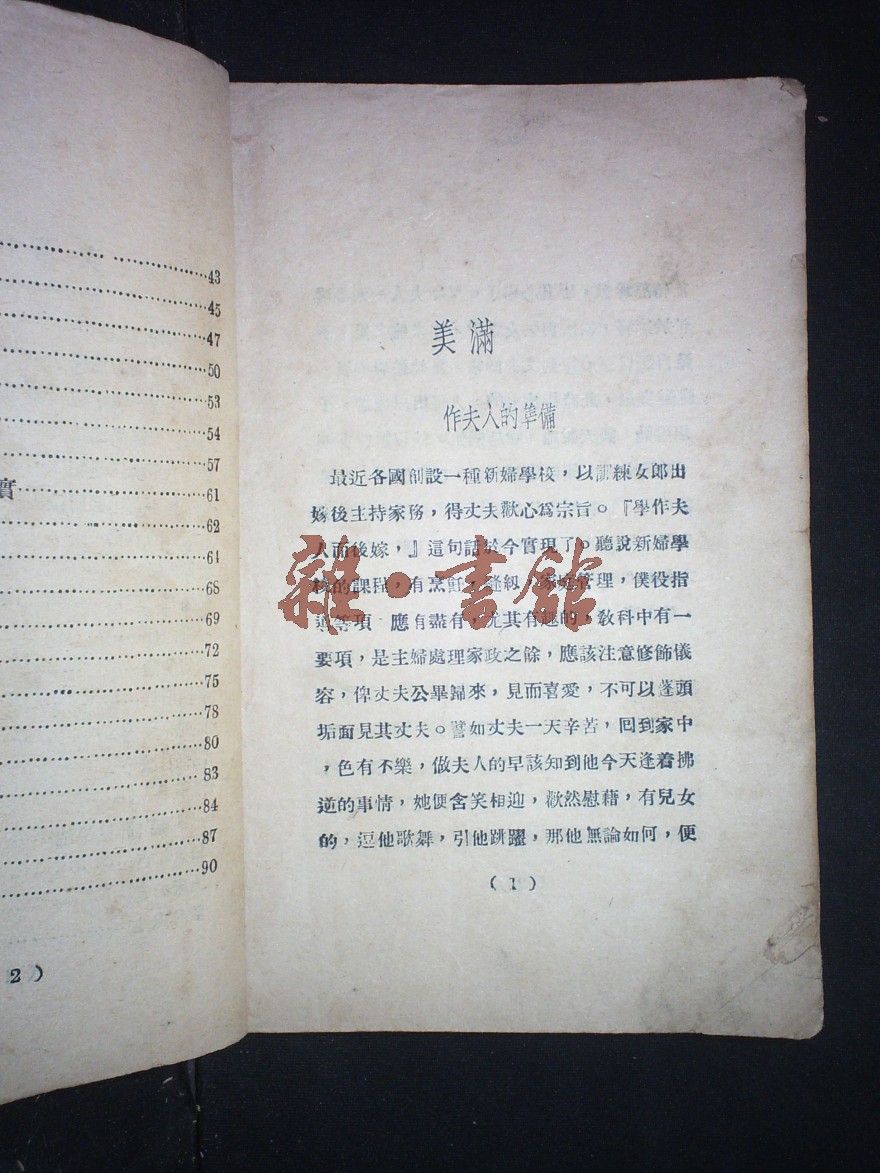 43
45
47
50
53
54
57
實 61
62
64
68
69
72
75
78
80
83
84
87
90
2 )
美滿
作夫人的準備
最近各國創設一種新婦學校，以訓練女郎出
嫁後主持家務，得丈夫歡心爲宗旨。『學作夫
人而後嫁，』這句話於今實現了。聽說新婦學
校的課程，有烹飪，縫紉，家庭管理，僕役指
導等項 應有盡有，尤其有趣的，敎科中有一
要項，是主婦處理家政之餘，應該注意修飾儀
容，俾丈夫公畢歸來，見而喜愛，不可以蓬頭
垢面見其丈夫。譬如丈夫一天辛苦，回到家中
，色有不樂，做夫人的早該知到他今天逢着拂
逆的事情，她便含笑相迎，歡然慰藉，有兒女
的，逗他歌舞，引他跳躍，那他無論如何，便
( 1 )
雜·書館